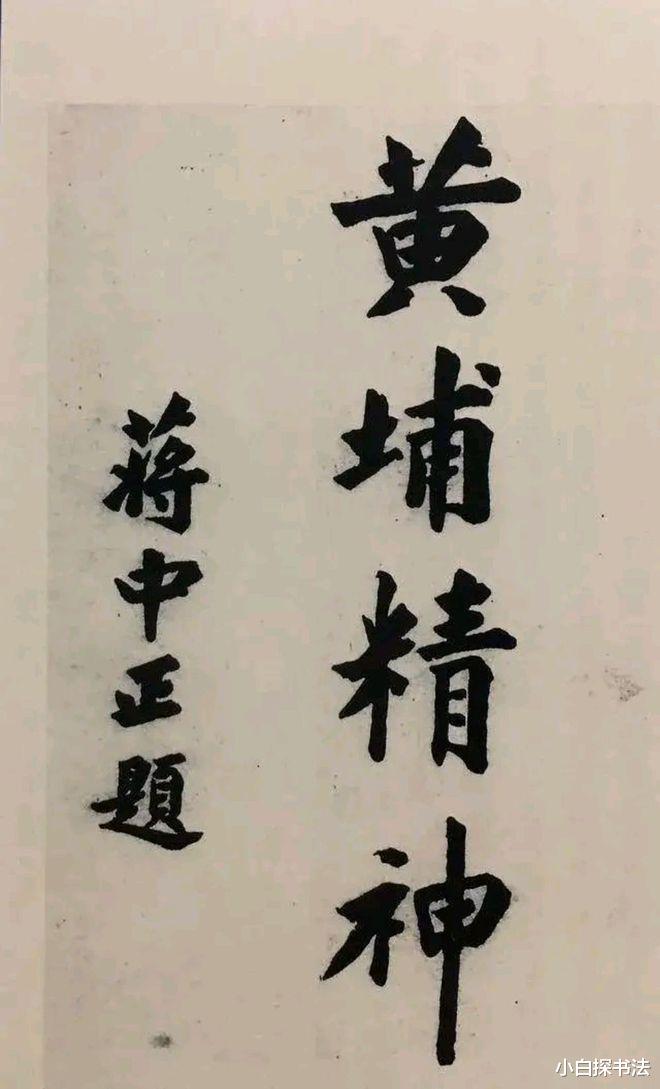 黄埔精神
蒋中正题
小白探书法